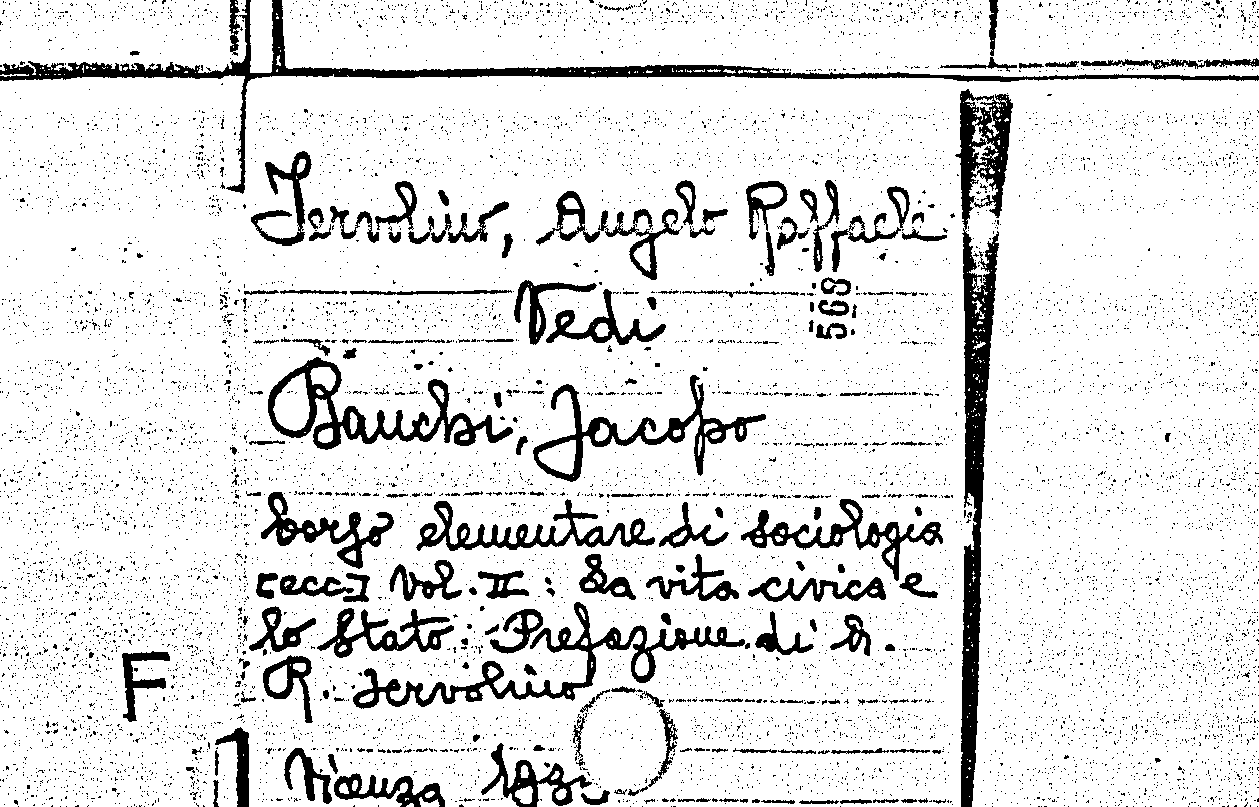 Jervolino, Angelo Raffaele
568
Vedi
Bauchi, Jacopo
Corso elementare di sociologia
[ecc.] Vol. II: La vita civica e
lo Stato. - Prefazione di A.
R. Jervolino
F
Vicenza